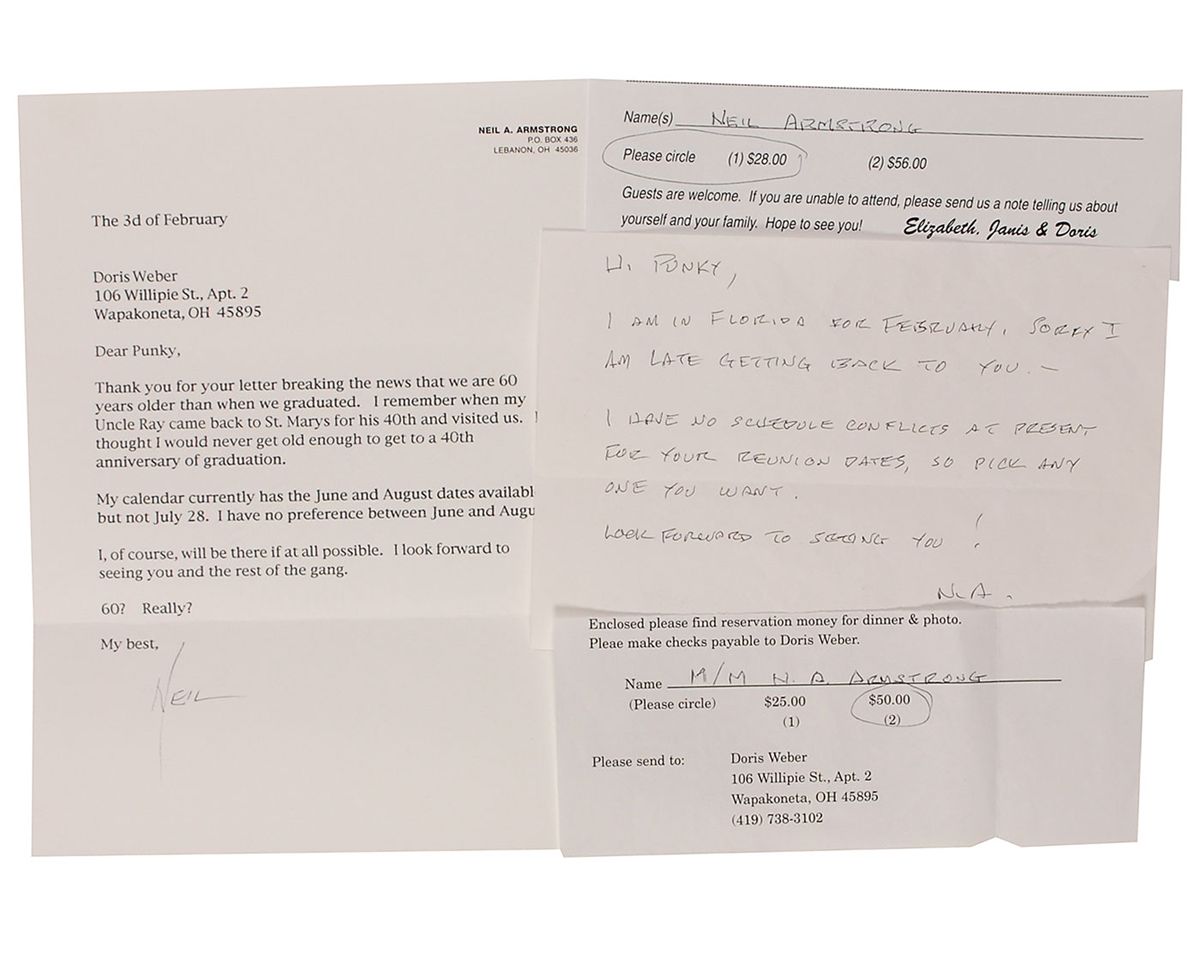 NEIL A. ARMSTRONG
P.O. BOX 436
LEBANON, OH 45036
The 3d of February
Doris Weber
106 Willipie St., Apt. 2
Wapakoneta, OH 45895
Dear Punky,
Thank you for your letter breaking the news that we are 60
years older than when we graduated. I remember when my
Uncle Ray came back to St. Marys for his 40th and visited us. I
thought I would never get old enough to get to a 40th
anniversary of graduation.
My calendar currently has the June and August dates availabl
but not July 28. I have no preference between June and Augu
I, of course, will be there if at all possible. I look forward to
seeing you and the rest of the gang.
60? Really?
My best,
NEIL
Name(s) NEIL ARMSTRONG
Please circle (1) $28.00 (2) $56.00
Guests are welcome. If you are unable to attend, please send us a note telling us about
yourself and your family. Hope to see you! Elizabeth, Janis & Doris
HI PUNKY,
I AM IN FLORIDA FOR FEBRUARY, SORRY I
AM LATE GETTING BACK TO YOU. –
I HAVE NO SCHEDULE CONFLICTS AT PRESENT
FOR YOUR REUNION DATES, SO PICK ANY
ONE YOU WANT.
LOOK FORWARD TO SEEING YOU!
N.A.
Enclosed please find reservation money for dinner & photo.
Pleae make checks payable to Doris Weber.
Name M/M N. A. ARMSTRONG
(Please circle) $25.00 $50.00
(1) (2)
Please send to: Doris Weber
106 Willipie St., Apt. 2
Wapakoneta, OH 45895
(419) 738-3102